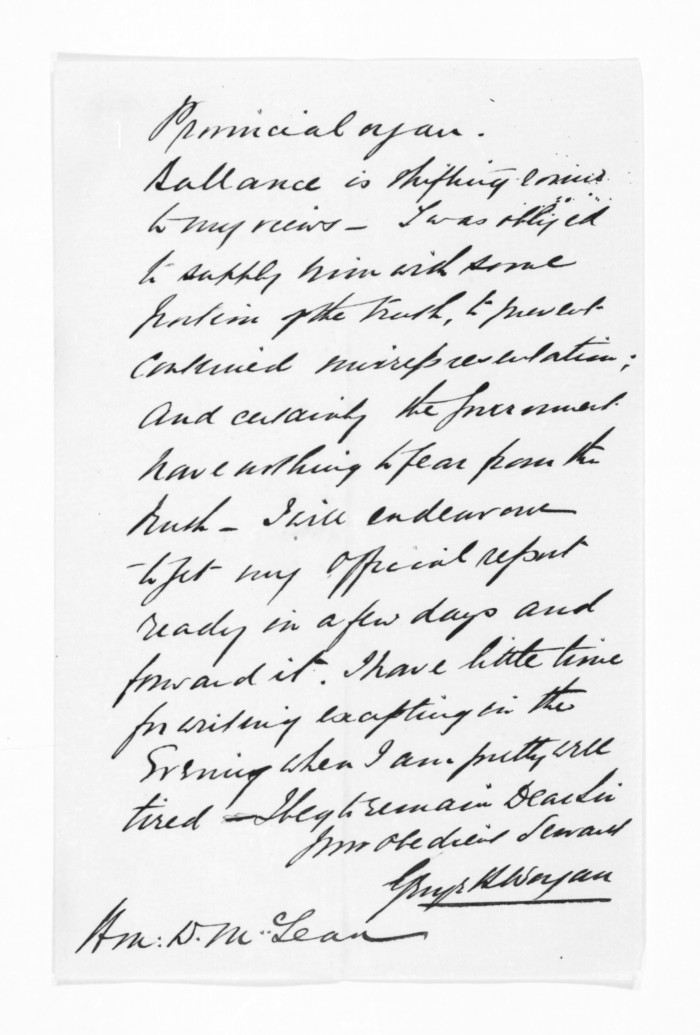 Provincial organ.
Ballance is shifting round
to my views — I was obliged
to supply him with some
portion of the truth, to prevent
continued misrepresentation;
and certainly the Government
have nothing to fear from the
truth — I will endeavour
to get my official report
ready in a few days and
forward it. I have little time
for writing excepting in the
Evening when I am pretty well
tired — I beg to remain Dear Sir
Your obedient Servant
H Worgan
Hon: D. McLean